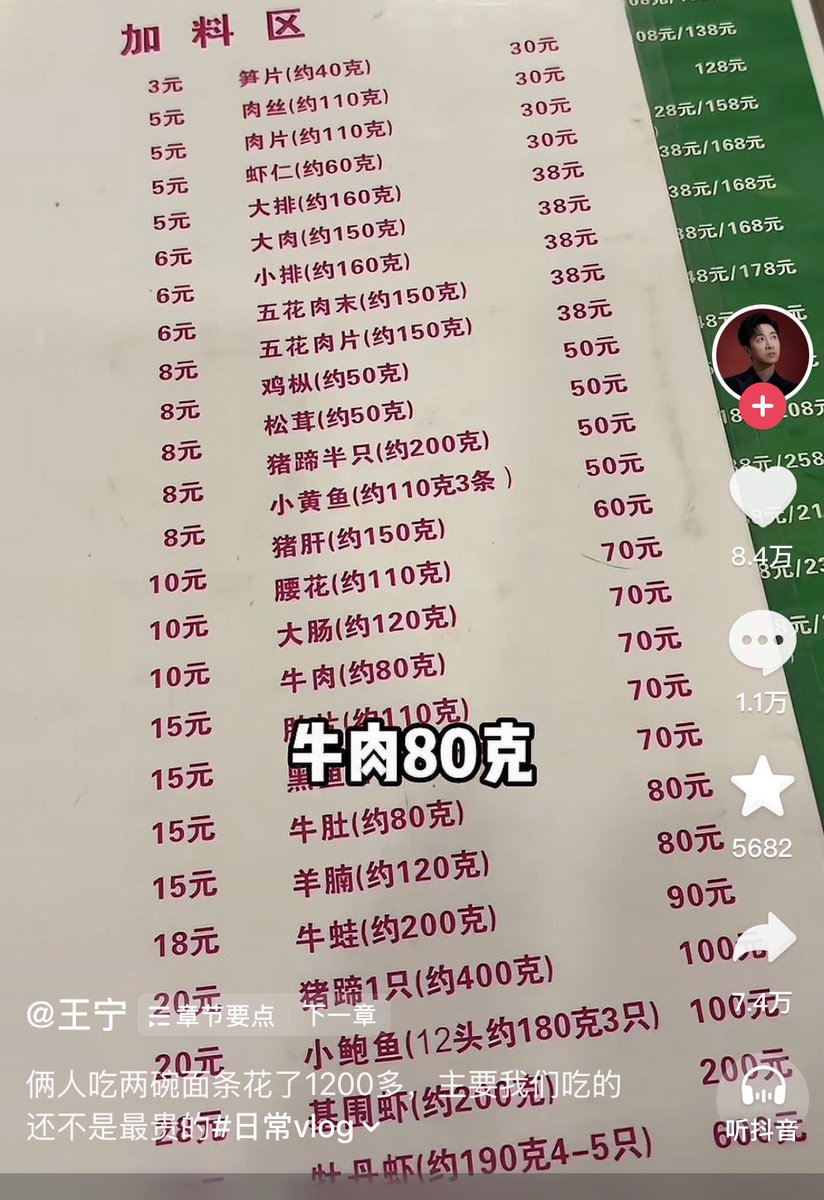 加料区
3元 笋片(约40克) 30元
5元 肉丝(约110克) 30元
5元 肉片(约110克) 30元
5元 虾仁(约60克) 30元
5元 大排(约160克) 38元
6元 大肉(约150克) 38元
6元 小排(约160克) 38元
6元 五花肉末(约150克) 38元
8元 五花肉片(约150克) 38元
8元 鸡枞(约50克) 50元
8元 松茸(约50克) 50元
8元 猪蹄半只(约200克) 50元
8元 小黄鱼(约110克3条) 50元
10元 猪肝(约150克) 60元
10元 腰花(约110克) 70元
10元 大肠(约120克) 70元
15元 牛肉(约80克) 70元
15元 (约110克) 70元
15元 黑鱼 70元
15元 牛肚(约80克) 80元
18元 羊腩(约120克) 80元
20元 牛蛙(约200克) 90元
20元 猪蹄1只(约400克) 100元
小鲍鱼(12头约180克3只) 100元
基围虾(约200克) 200元
牡丹虾(约190克4-5只)
08元/138元
128元
28元/158元
38元/168元
38元/168元
38元/168元
48元/178元
牛肉80克
8.4万
1.1万
5682
7.4万
听抖音
@王宁 章节要点 下一章
俩人吃两碗面条花了1200多，主要我们吃的
还不是最贵的#日常vlog